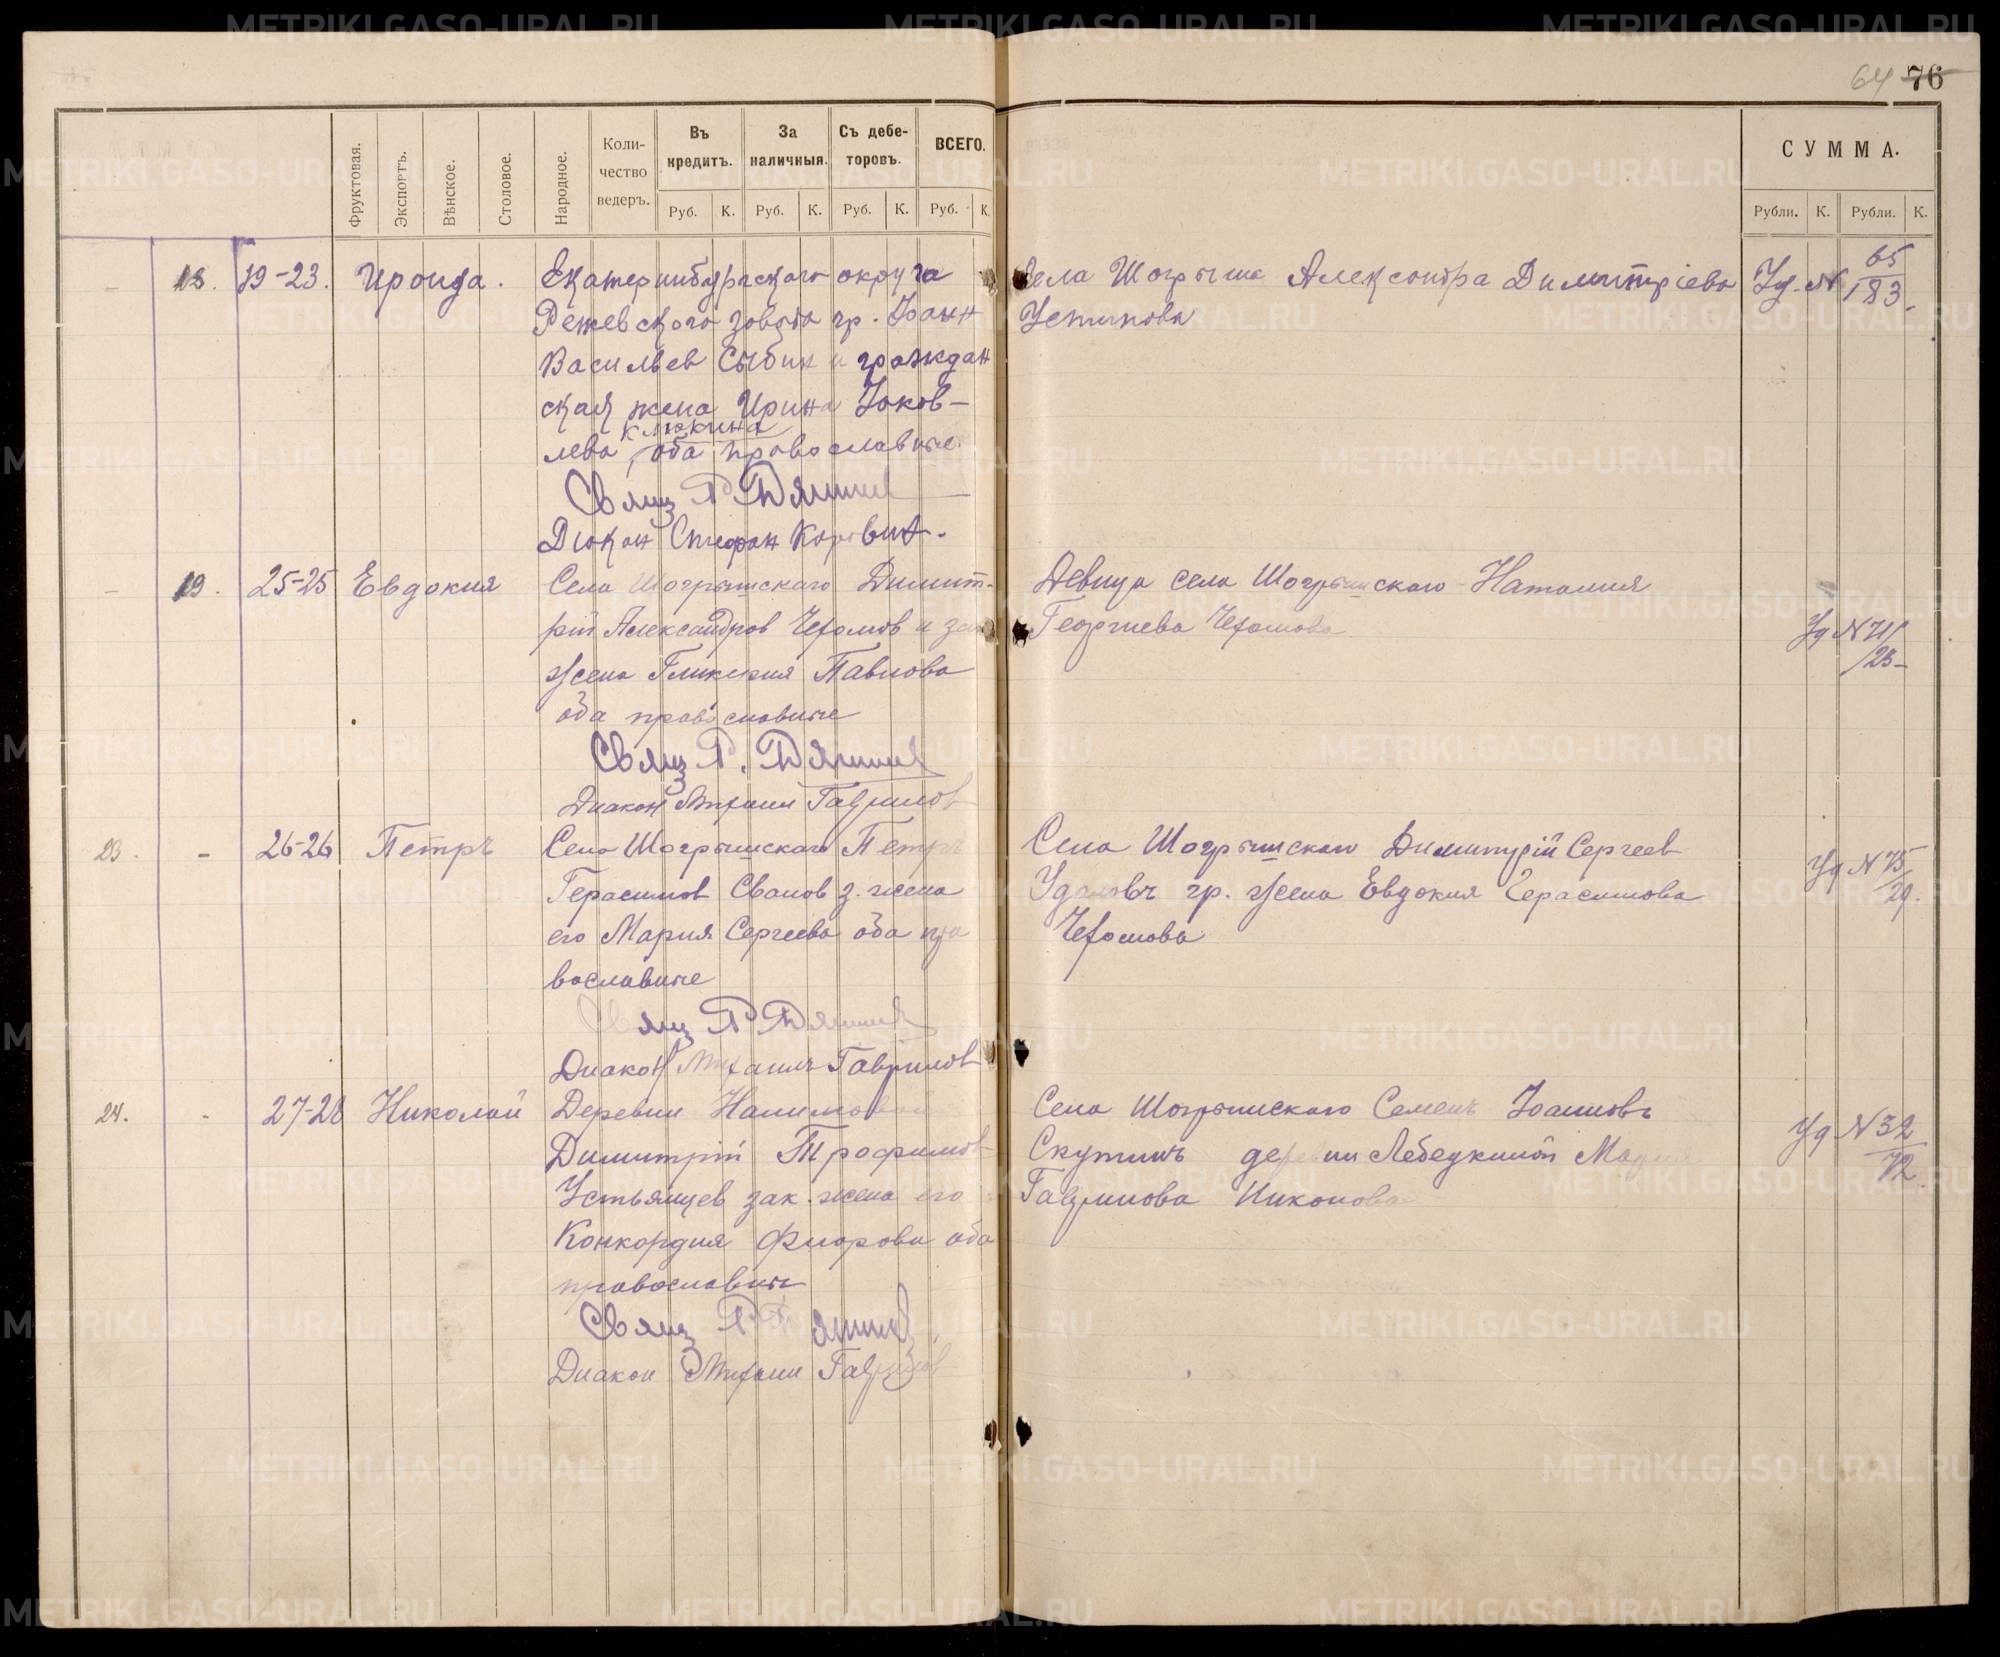 64 76
Фруктовая.
Экспортъ.
Вѣнское.
Столовое.
Народное.
Коли-
чество
ведеръ.
Въ
кредитъ.
За
наличныя.
Съ дебе-
торовъ.
ВСЕГО.
Руб. К. Руб. К. Руб. К. Руб. К.
СУММА.
Рубли. К. Рубли. К.
18. 19-23. Ироида.
Екатеринбургскаго округа
Режевскаго завода гр. Іоанн
Васильев и граждан
ская жена Ирина Іаков-
Клюкина
лева, оба православные.
Свящ Р.
Диакон Стефан
села Шогрыша Александра Димитріева
Устинова
Уд. N 65
183
19. 25-25 Евдокия
Села Шогрышскаго Димит-
рій Александров Чехомов и зак
жена Гликерия Павлова
оба православные
Свящ Р.
Диакон Михаил Гаврилов
Девица села Шогрышскаго Наталия
Георгиева Чехомова
Уд N 71
23. - 26-26 Петръ
Села Шогрышскаго Петръ
Герасимов з. жена
его Мария Сергеева оба пра
вославные
Свящ Р.
Диакон Михаилъ Гаврилов
Села Шогрышскаго Димитрій Сергеев
гр. жена Евдокия Герасимова
Чехомова
Уд N 75
29.
24. - 27-28 Николай
Деревни
Димитрій Трофимов
Устьянцев зак. жена его
Конкордия Флорова оба
православны
Свящ Р
Диакон Михаил Гаврилов
Села Шогрышскаго Семенъ Іоанновъ
Скутинъ деревни Лебедкиной Мария
Гаврилова Никонова
Уд N 32
72
METRIKI.GASO-URAL.RU